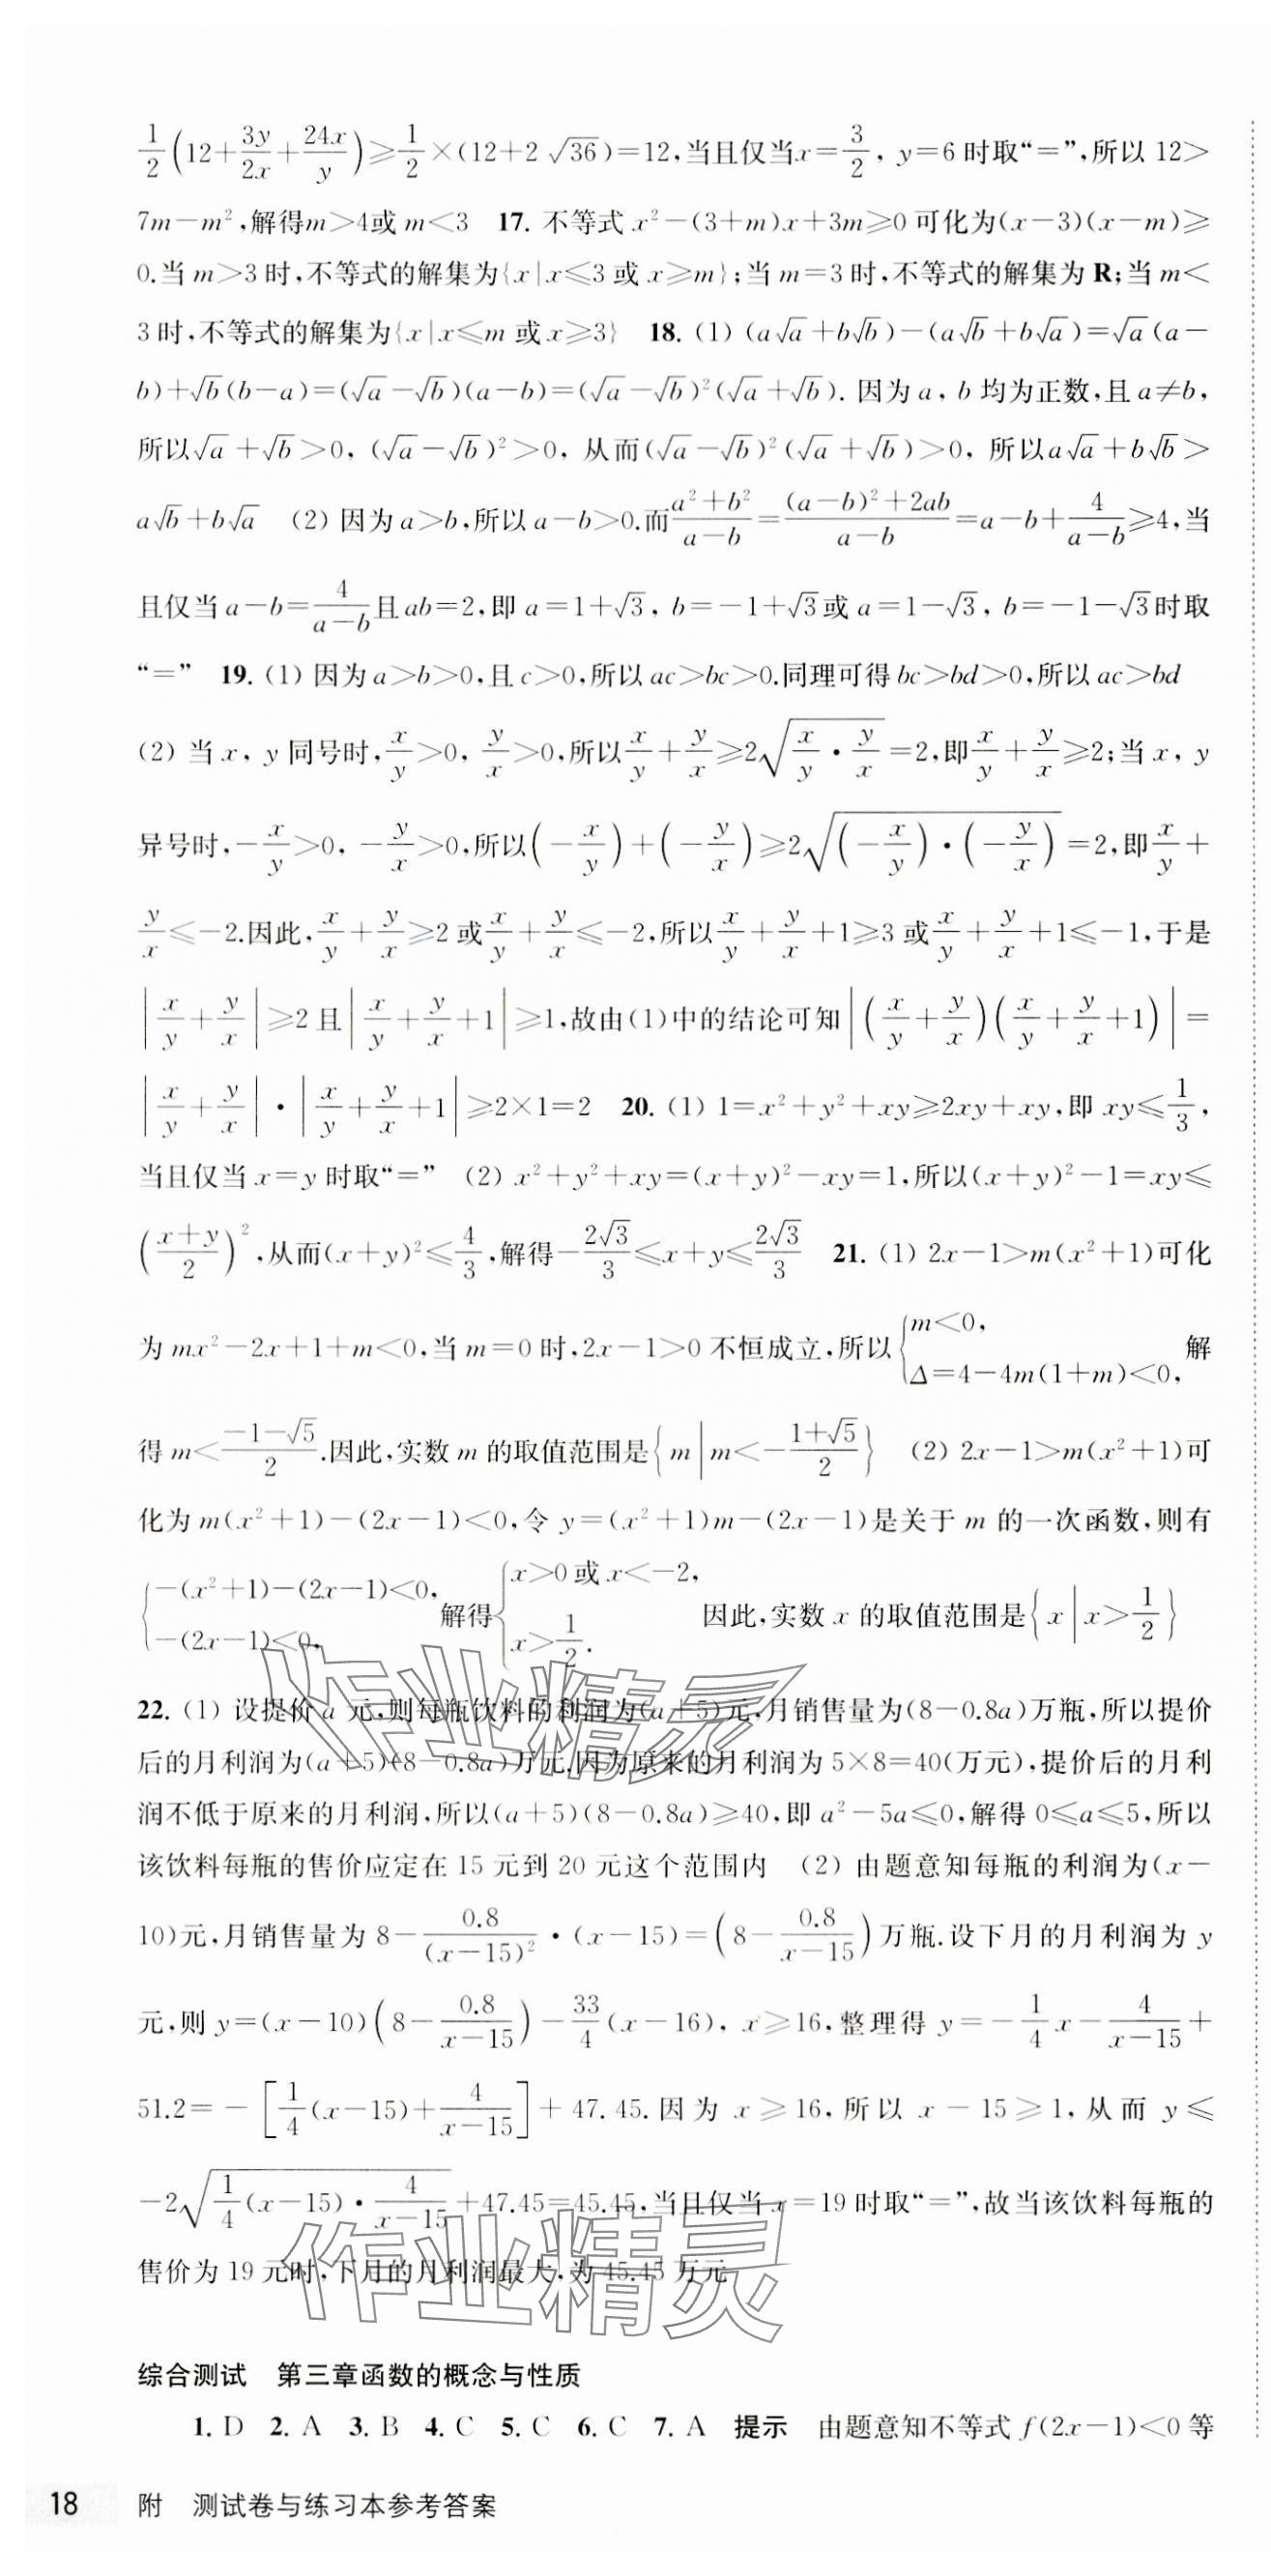 $\frac{1}{2}\left(12+\frac{3y}{2x}+\frac{24x}{y}\right)\geqslant\frac{1}{2}\times(12+2\sqrt{36})=12$,当且仅当$x=\frac{3}{2}$, $y=6$时取“=”,所以 12>
$7m-m^2$,解得$m>4$或$m<3$ 17. 不等式 $x^2-(3+m)x+3m\geqslant0$可化为$(x-3)(x-m)\geqslant$
0.当 $m>3$ 时,不等式的解集为$\{x|x\leqslant3$ 或 $x\geqslant m\}$;当 $m=3$ 时,不等式的解集为 R;当 $m<$
3 时,不等式的解集为$\{x|x\leqslant m$ 或 $x\geqslant3\}$ 18. (1) $(a\sqrt{a}+b\sqrt{b})-(a\sqrt{b}+b\sqrt{a})=\sqrt{a}(a-$
$b)+\sqrt{b}(b-a)=(\sqrt{a}-\sqrt{b})(a-b)=(\sqrt{a}-\sqrt{b})^2(\sqrt{a}+\sqrt{b})$. 因为 $a$, $b$ 均为正数,且 $a\neq b$,
所以$\sqrt{a}+\sqrt{b}>0$, $(\sqrt{a}-\sqrt{b})^2>0$, 从而$(\sqrt{a}-\sqrt{b})^2(\sqrt{a}+\sqrt{b})>0$, 所以$a\sqrt{a}+b\sqrt{b}>$
$a\sqrt{b}+b\sqrt{a}$ (2) 因为 $a>b$,所以 $a-b>0$.而$\frac{a^2+b^2}{a-b}=\frac{(a-b)^2+2ab}{a-b}=a-b+\frac{4}{a-b}\geqslant4$,当
且仅当 $a-b=\frac{4}{a-b}$且 $ab=2$,即 $a=1+\sqrt{3}$, $b=-1+\sqrt{3}$或 $a=1-\sqrt{3}$, $b=-1-\sqrt{3}$时取
“=” 19. (1) 因为 $a>b>0$,且 $c>0$,所以 $ac>bc>0$.同理可得 $bc>bd>0$,所以 $ac>bd$
(2) 当 $x$, $y$ 同号时,$\frac{x}{y}>0$, $\frac{y}{x}>0$,所以$\frac{x}{y}+\frac{y}{x}\geqslant2\sqrt{\frac{x}{y}\cdot\frac{y}{x}}=2$,即$\frac{x}{y}+\frac{y}{x}\geqslant2$;当 $x$, $y$
异号时,$-\frac{x}{y}>0$, $-\frac{y}{x}>0$,所以$\left(-\frac{x}{y}\right)+\left(-\frac{y}{x}\right)\geqslant2\sqrt{\left(-\frac{x}{y}\right)\cdot\left(-\frac{y}{x}\right)}=2$,即$\frac{x}{y}+$
$\frac{y}{x}\leqslant-2$.因此,$\frac{x}{y}+\frac{y}{x}\geqslant2$ 或$\frac{x}{y}+\frac{y}{x}\leqslant-2$,所以$\frac{x}{y}+\frac{y}{x}+1\geqslant3$ 或$\frac{x}{y}+\frac{y}{x}+1\leqslant-1$,于是
$\left|\frac{x}{y}+\frac{y}{x}\right|\geqslant2$ 且$\left|\frac{x}{y}+\frac{y}{x}+1\right|\geqslant1$,故由(1)中的结论可知$\left|\left(\frac{x}{y}+\frac{y}{x}\right)\left(\frac{x}{y}+\frac{y}{x}+1\right)\right|=$
$\left|\frac{x}{y}+\frac{y}{x}\right|\cdot\left|\frac{x}{y}+\frac{y}{x}+1\right|\geqslant2\times1=2$ 20. (1) $1=x^2+y^2+xy\geqslant2xy+xy$,即 $xy\leqslant\frac{1}{3}$,
当且仅当 $x=y$ 时取“=” (2) $x^2+y^2+xy=(x+y)^2-xy=1$,所以$(x+y)^2-1=xy\leqslant$
$\left(\frac{x+y}{2}\right)^2$,从而$(x+y)^2\leqslant\frac{4}{3}$,解得$-\frac{2\sqrt{3}}{3}\leqslant x+y\leqslant\frac{2\sqrt{3}}{3}$ 21. (1) $2x-1>m(x^2+1)$可化
为 $mx^2-2x+1+m<0$,当 $m=0$ 时,$2x-1>0$ 不恒成立,所以$\begin{cases}m<0,\\\Delta=4-4m(1+m)<0,\end{cases}$ 解
得 $m<\frac{-1-\sqrt{5}}{2}$.因此,实数 $m$ 的取值范围是$\left\{m\middle|m<-\frac{1+\sqrt{5}}{2}\right\}$ (2) $2x-1>m(x^2+1)$可
化为 $m(x^2+1)-(2x-1)<0$,令 $y=(x^2+1)m-(2x-1)$是关于 $m$ 的一次函数,则有
$\begin{cases}-(x^2+1)-(2x-1)<0,\\-(2x-1)<0,\end{cases}$解得$\begin{cases}x>0\text{或}x<-2,\\x>\frac{1}{2}.\end{cases}$ 因此,实数 $x$ 的取值范围是$\left\{x\middle|x>\frac{1}{2}\right\}$
22. (1) 设提价 $a$ 元,则每瓶饮料的利润为$(a+5)$元,月销售量为$(8-0.8a)$万瓶,所以提价
后的月利润为$(a+5)(8-0.8a)$万元.因为原来的月利润为 $5\times8=40$(万元),提价后的月利
润不低于原来的月利润,所以$(a+5)(8-0.8a)\geqslant40$,即 $a^2-5a\leqslant0$,解得 $0\leqslant a\leqslant5$,所以
该饮料每瓶的售价应定在 15 元到 20 元这个范围内 (2) 由题意知每瓶的利润为$(x-$
$10)$元,月销售量为 $8-\frac{0.8}{(x-15)^2}\cdot(x-15)=\left(8-\frac{0.8}{x-15}\right)$万瓶.设下月的月利润为 $y$
元,则 $y=(x-10)\left(8-\frac{0.8}{x-15}\right)-\frac{33}{4}(x-16)$, $x\geqslant16$,整理得 $y=-\frac{1}{4}x-\frac{4}{x-15}+$
$51.2=-\left[\frac{1}{4}(x-15)+\frac{4}{x-15}\right]+47.45$.因为 $x\geqslant16$,所以 $x-15\geqslant1$,从而 $y\leqslant$
$-2\sqrt{\frac{1}{4}(x-15)\cdot\frac{4}{x-15}}+47.45=45.45$,当且仅当 $x=19$ 时取“=”,故当该饮料每瓶的
售价为 19 元时,下月的月利润最大,为 45.45 万元
作业精灵
作业精灵
综合测试 第三章函数的概念与性质
1. D 2. A 3. B 4. C 5. C 6. C 7. A 提示 由题意知不等式 $f(2x-1)<0$ 等
18 附 测试卷与练习本参考答案